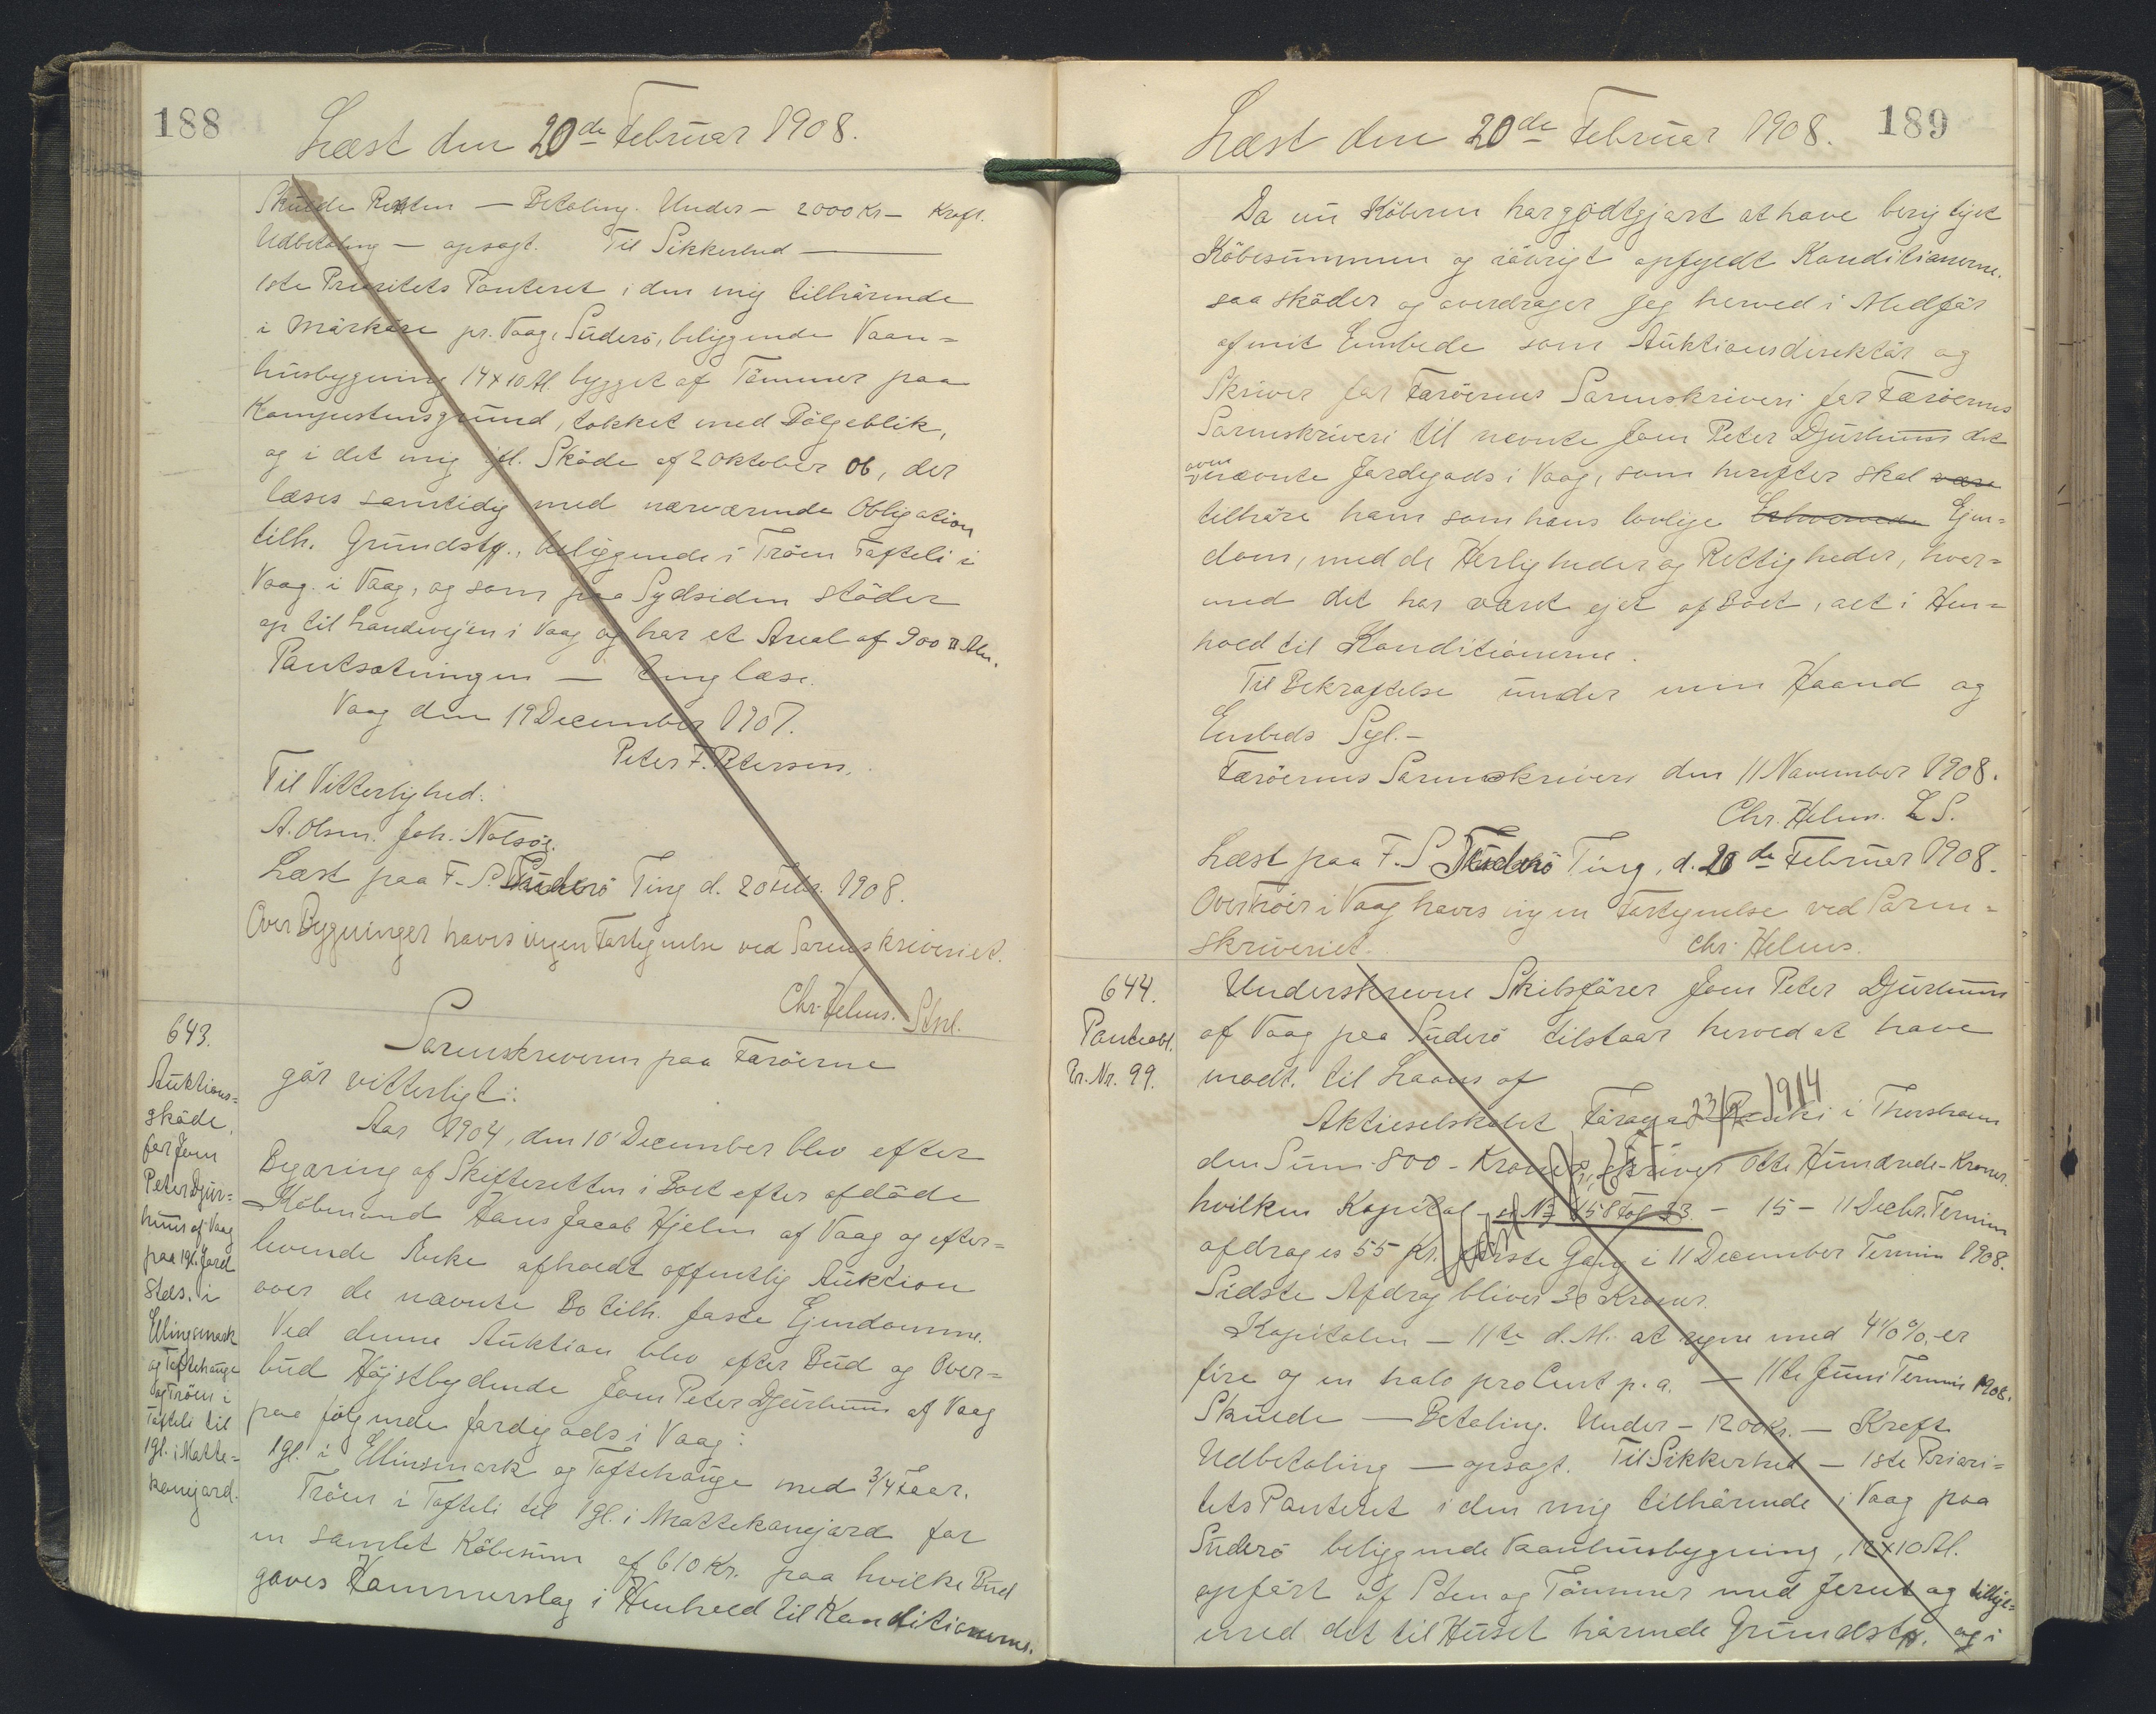 188
Læst den 20de Februar 1908.
Skulde Retten — Betaling. Under — 2000 Kr — Kraft.
Udbetaling — opsagt. Til Sikkerhed —
1ste Prioritets Panteret i den mig tilhørende
i Mårkåre pr. Vaag, Suderö, beliggende Vaan-
husbygning 14x10 Al. bygget af Tömmer paa
Kampestensgrund, tækket med Bölgeblik,
og i det mig ifl. Sköde af 2 Oktober 06, der
læses samtidig med nærværende Obligation
tilh. Grundst., beliggende i Tröen Tafteli i
Vaag i Vaag, og som paa Sydsiden stöder
op til Landevejen i Vaag og har et Areal af 900 □ Aln.
Pantsætningen — tinglæse.
Vaag den 19 December 1907.
Peter F. Petersen.
Til Vitterlighed:
A. Olsen. Joh. Nolsöe.
Læst paa F. S. Suderö Ting d. 20 Febr. 1908.
Over Bygninger haves ingen Fortegnelse ved Sorenskriveriet.
Chr. Helms. Stsl.
643.
Auktions-
sköde
for Joen
Peter Djur-
huus af Vaag
paa 1 gl. Jord
Steds. i
Ellingsmark
og Taftehauge
og Tröen i
Tafteli til
1 gl. i Matte-
kanejord.
Sorenskriveren paa Færöerne
gör vitterligt:
Aar 1904, den 10 December blev efter
Begæring af Skifteretten i Boet efter afdöde
Köbmand Hans Jacob Hjelm af Vaag og efter-
levende Enke afholdt offentlig Auktion
over de nævnte Bo tilh. faste Ejendomme.
Ved denne Auktion blev efter Bud og Over-
bud Höjstbydende Joen Peter Djurhuus af Vaag
paa fölgende Jordegods i Vaag:
1 gl. i Ellinsmark og Taftehauge med 3/4 Faar.
Tröen i Tafteli til 1 gl. i Mattekanejord for
en samlet Köbesum af 610 Kr. paa hvilke Bud
gaves Hammerslag i Henhold til Konditionerne.
189
Læst den 20de Februar 1908.
Da nu Köberen har godtgjort at have berigtiget
Köbesummen og iövrigt opfyldt Konditionerne.
saa sköder og overdrager jeg herved i Medför
af mit Embede som Auktionsdirektör og
Skriver for Færöernes Sorenskriveri for Færöernes
Sorenskriveri til nævnte Joen Peter Djurhuus det
ovennævnte Jordegods i Vaag, som herefter skal være
tilhöre ham som hans lovlige Erhvervede Ejen-
dom, med de Herligheder og Rettigheder, hvor-
med det har været ejet af Boet, alt i Hen-
hold til Konditionerne.
Til Bekræftelse under min Haand og
Embeds Segl. —
Færöernes Sorenskriveri den 11 November 1908.
Chr. Helms. L S.
Læst paa F. S. Suderö Ting, d. 20de Februar 1908.
Over Tröer i Vaag haves ingen Fortegnelse ved Soren-
skriveriet.
Chr. Helms.
644.
Panteobl.
Pr. Nr. 99.
Underskrevne Skibsförer Joen Peter Djurhuus
af Vaag paa Suderö tilstaar herved at have
modt. til Laans af
Aktieselskabet Föroya Banki i Thorshavn
23/9 1914
den Sum 800 - Kroner, skriver Otte Hundrede - Kroner.
hvilken Kapital — 15 — 11 Decbr. Termin
afdrages 55 Kr. förste Gang i 11 December Termin 1908.
Sidste Afdrag bliver 30 Kroner.
Kapitalen — 11te d. M. at regne med 4½%. er
fire og en halv pro Cent p. a. — 11te Juni Termin 1908.
Skulde — Betaling. Under — 1200 Kr. — Kraft
Udbetaling — opsagt. Til Sikkerhed — 1ste Priori-
tets Panteret i den mig tilhörende i Vaag paa
Suderö beliggende Vaanhusbygning, 12x10 Al.
opfört af Sten og Tömmer med Jernt og tillige-
med det til Huset hörende Grundst. og i